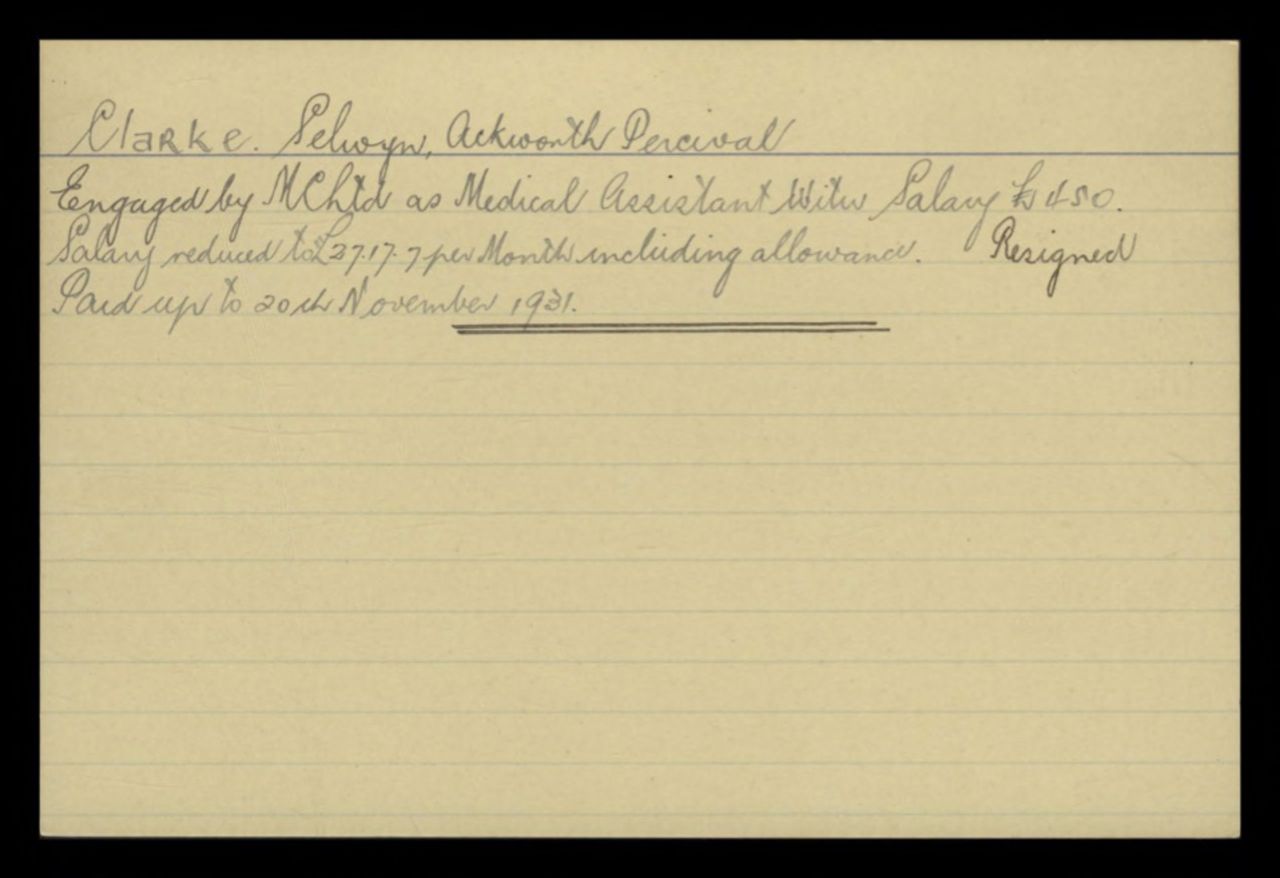 Clarke. Selwyn, Ackworth Percival
Engaged by M C Ltd as Medical Assistant With Salary £450.
Salary reduced to £37.17.7 per Month including allowance. Resigned
Paid up to 20th November 1931.